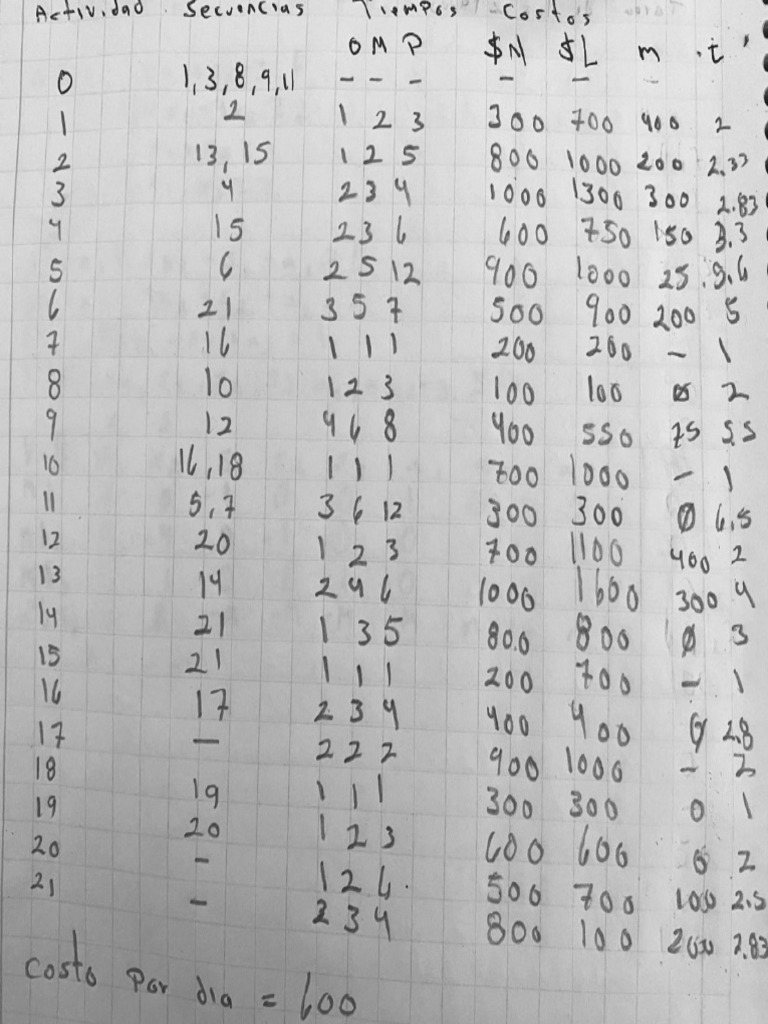 Actividad Secuencias Tiempos Costos
O M P $N $L m t
0 1,3,8,9,11 - - - - - -
1 2 1 2 3 300 700 400 2
2 13,15 1 2 5 800 1000 200 2.33
3 4 2 3 4 1000 1300 300 2.83
4 15 2 3 6 600 750 150 3.3
5 6 2 5 12 900 1000 25
6 21 3 5 7 500 900 200 5
7 16 1 1 1 200 200 - 1
8 10 1 2 3 100 100 0 2
9 12 4 6 8 400 550 75 5.5
10 16,18 1 1 1 700 1000 - 1
11 5,7 3 6 12 300 300 Ø 6.5
12 20 1 2 3 700 1100 400 2
13 14 2 4 6 1000 1600 300 4
14 21 1 3 5 800 800 Ø 3
15 21 1 1 1 200 700 - 1
16 17 2 3 4 400 400 0 2.8
17 - 2 2 2 900 1000 - 2
18 19 1 1 1 300 300 0 1
19 20 1 2 3 600 600 0 2
20 - 1 2 6 500 700 100 2.5
21 - 2 3 4 800 100 2.83
Costo por dia = 600